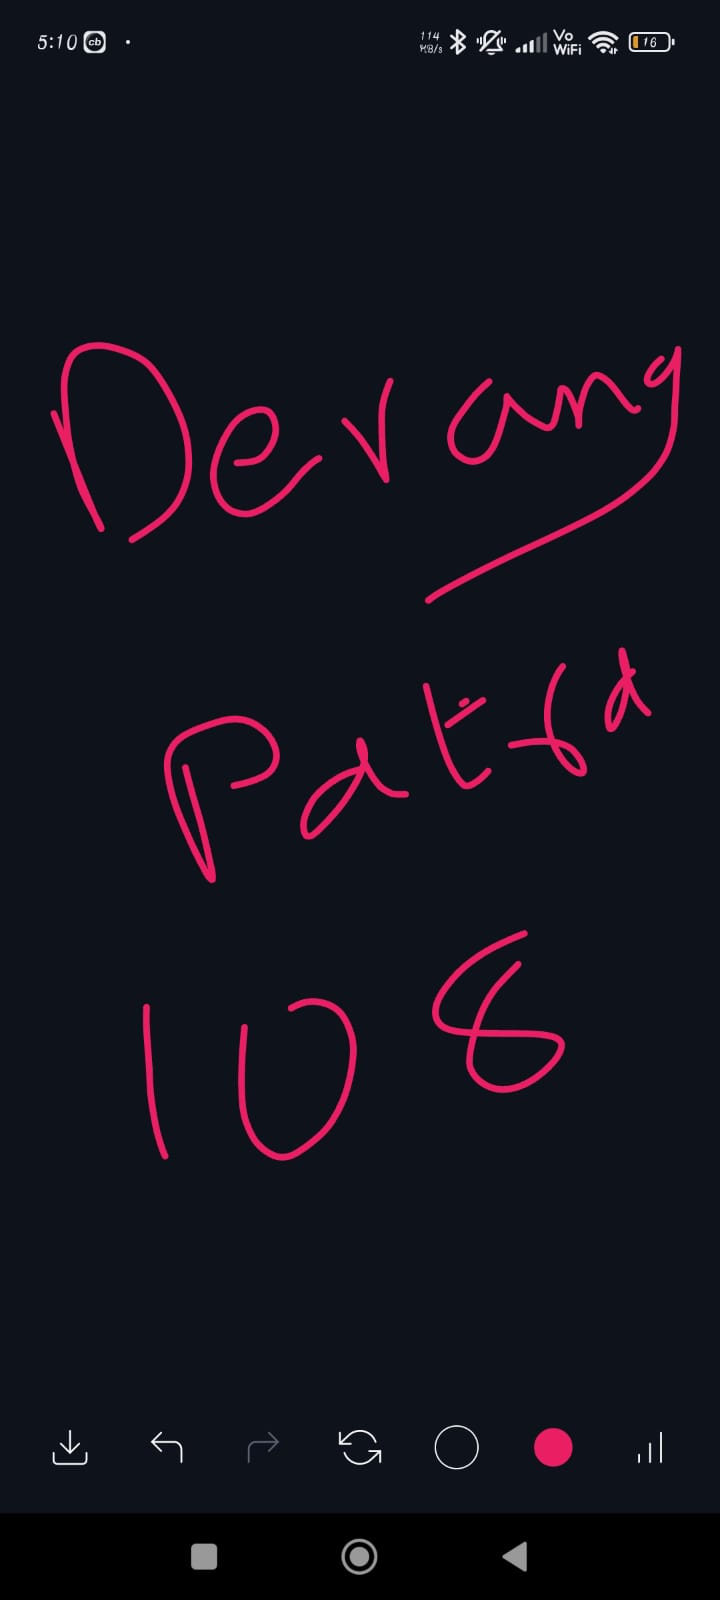 5:10 cb 114 KB/s Vo WiFi 16
Devang
Patra
108